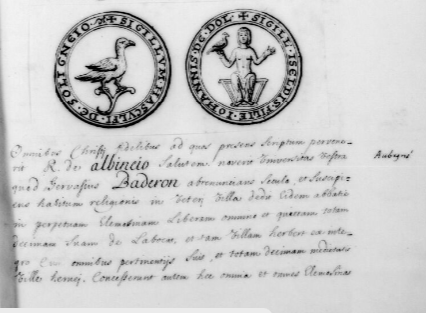 ✠ SIGILLVM HASCLF DE SOLIGNEIO
✠ SIGILL ISELDIS FILIE IOHANNIS DE DOL
Omnibus Christi fidelibus ad quos presens Scriptum pervene-
rit R. de albineio Salutem noverit Universitas Vestra
Aubigné
quod Gervasius Baderon abrenuntians Seculo et Suscipi-
ens habitum religionis in Veteri Villa dedit Eidem abbatie
in perpetuam Elemosinam Liberam omnino et quietam totam
decimam Suam de et tam Villam herbert ex inte-
gro Cum omnibus pertinentijs Suis, et totam decimam medietatis
Ville hervei, Concesserunt autem hec omnia et omnes Elemosinas